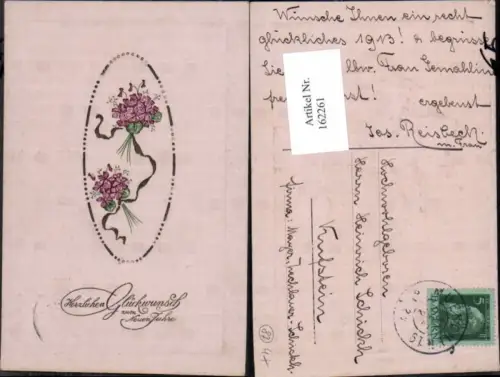 Herzlichen Glückwunsch
zum Neuen Jahre
82
4x
Wünsche Ihnen ein recht
glückliches 1913! & begrüsse
Sie Frau Gemahlin
ergebenst
Jos. Reisbeck
u. Frau
Artikel Nr.
162261
Hochwohlgeboren
Herrn Heinrich Schicht
Kufstein